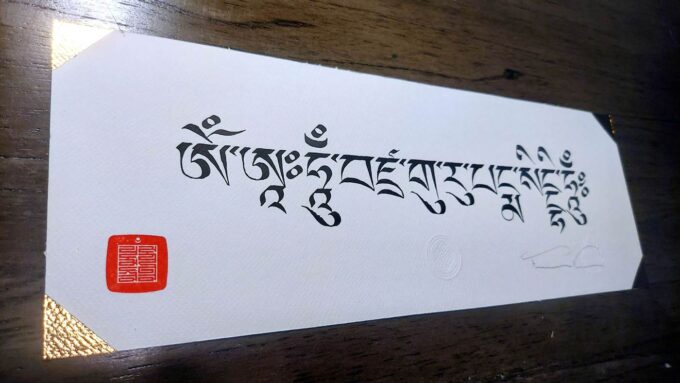 ཨོཾ་ཨཱཿཧཱུྃ་བཛྲ་གུ་རུ་པདྨ་སིདྡྷི་ཧཱུྃ༔